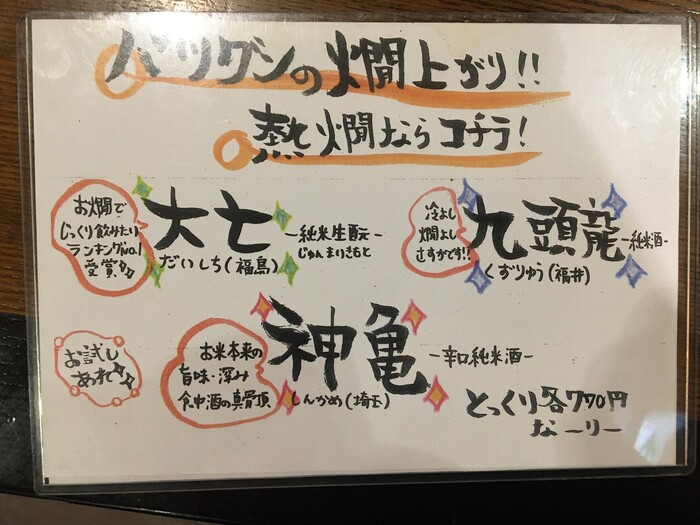 バツグンの燗上がり!!
熱燗ならコチラ!
お燗で
じっくり飲みたい
ランキングNo.1
受賞
大七
だいしち(福島)
-純米生酛-
じゅんまいきもと
冷よし
燗よし
さすがです!!
九頭龍
くずりゅう(福井)
-純米酒-
お試し
あれ
お米本来の
旨味・深み
食中酒の真骨頂
神亀
しんかめ(埼玉)
-辛口純米酒-
とっくり各770円
なーりー